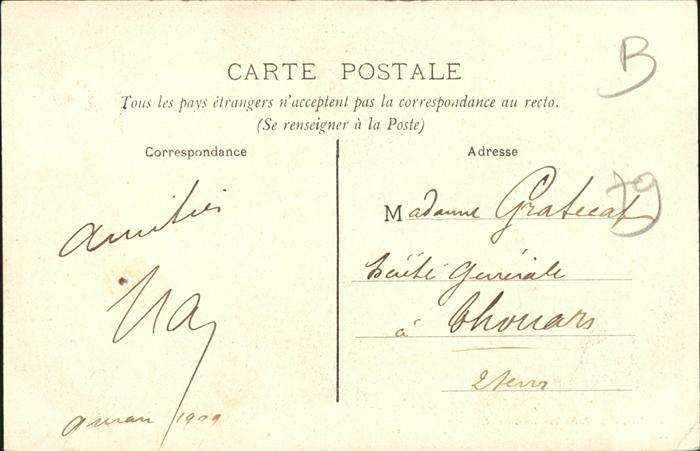 CARTE POSTALE
Tous les pays étrangers n'acceptent pas la correspondance au recto.
(Se renseigner à la Poste)
B
Correspondance
Adresse
79
Amitiés
Madame Gratecat
Société Generale
à Thouars
2 Sevres
1909